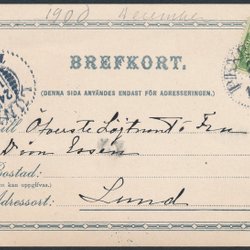 1900 December
BREFKORT.
(DENNA SIDA ANVÄNDES ENDAST FÖR ADRESSERINGEN.)
Till Öfverste Löjtnant o Fru
von Essen
Bostad:
(om kan uppgifvas.)
Adressort: Lund